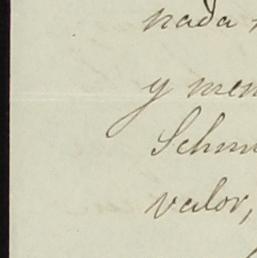 nada
y men
Schm
valor,